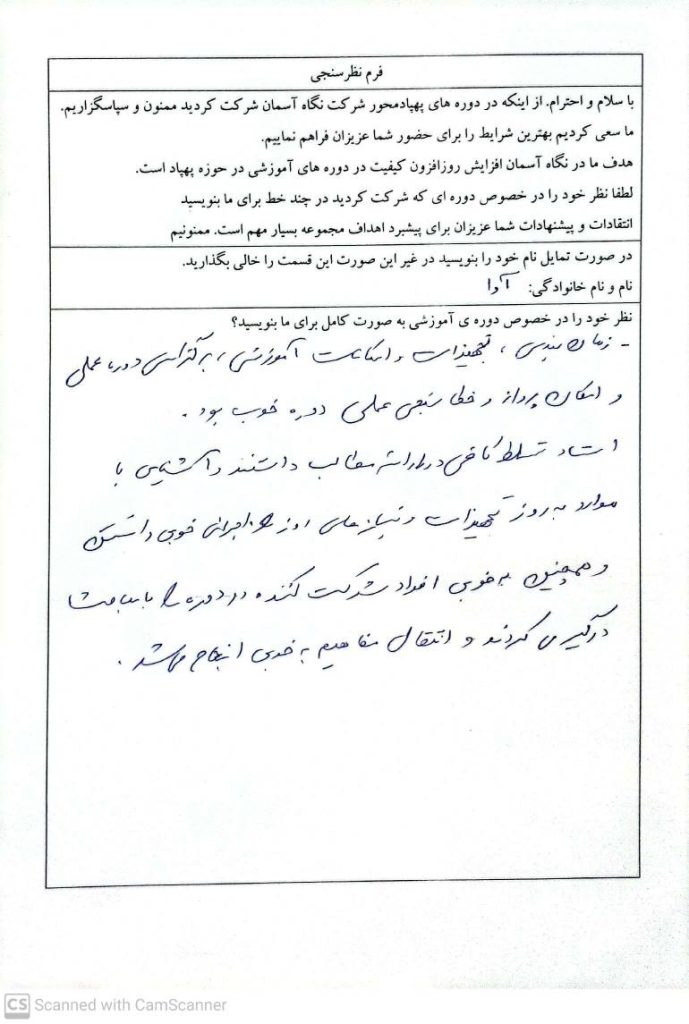 فرم نظرسنجی
با سلام و احترام. از اینکه در دوره های پهپادمحور شرکت نگاه آسمان شرکت کردید ممنون و سپاسگزاریم.
ما سعی کردیم بهترین شرایط را برای حضور شما عزیزان فراهم نماییم.
هدف ما در نگاه آسمان افزایش روزافزون کیفیت در دوره های آموزشی در حوزه پهپاد است.
لطفا نظر خود را در خصوص دوره ای که شرکت کردید در چند خط برای ما بنویسید
انتقادات و پیشنهادات شما عزیزان برای پیشبرد اهداف مجموعه بسیار مهم است. ممنونیم
در صورت تمایل نام خود را بنویسید در غیر این صورت این قسمت را خالی بگذارید.
نام و نام خانوادگی: آوا
نظر خود را در خصوص دوره ی آموزشی به صورت کامل برای ما بنویسید؟
- زمان بندی، تجهیزات و امکانات آموزشی، برگزاری دوره عملی
و امکان پرواز و خطا سنجی عملی دوره خوب بود.
استاد تسلط کافی در ارائه مطالب داشتند و آشنایی با
موارد به روز تجهیزات و نیازهای روز اجرائی خوبی داشتند
و همچنین به خوبی افراد شرکت کننده در دوره را با مباحث
درگیر می کردند و انتقال مفاهیم به خوبی انجام می شد.
CS Scanned with CamScanner